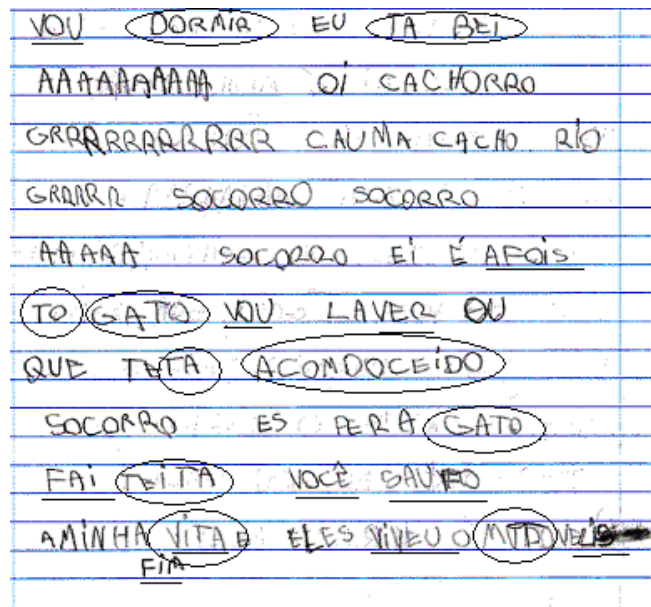 VOU DORMIR EU TA BEI
AAAAAAAAAA OI CACHORRO
GRRRRRRRRRRRR CAUMA CACHO RIO
GRRRRR SOCORRO SOCORRO
AAAAA SOCORRO EI É AFOIS
TO GATO VOU LAVER OU
QUE TATA ACOMDOCEIDO
SOCORRO ES PERA GATO
FAI TEITA VOCÊ SAUVO
AMINHA VITA E ELES VIVEU O MTDO
FIM